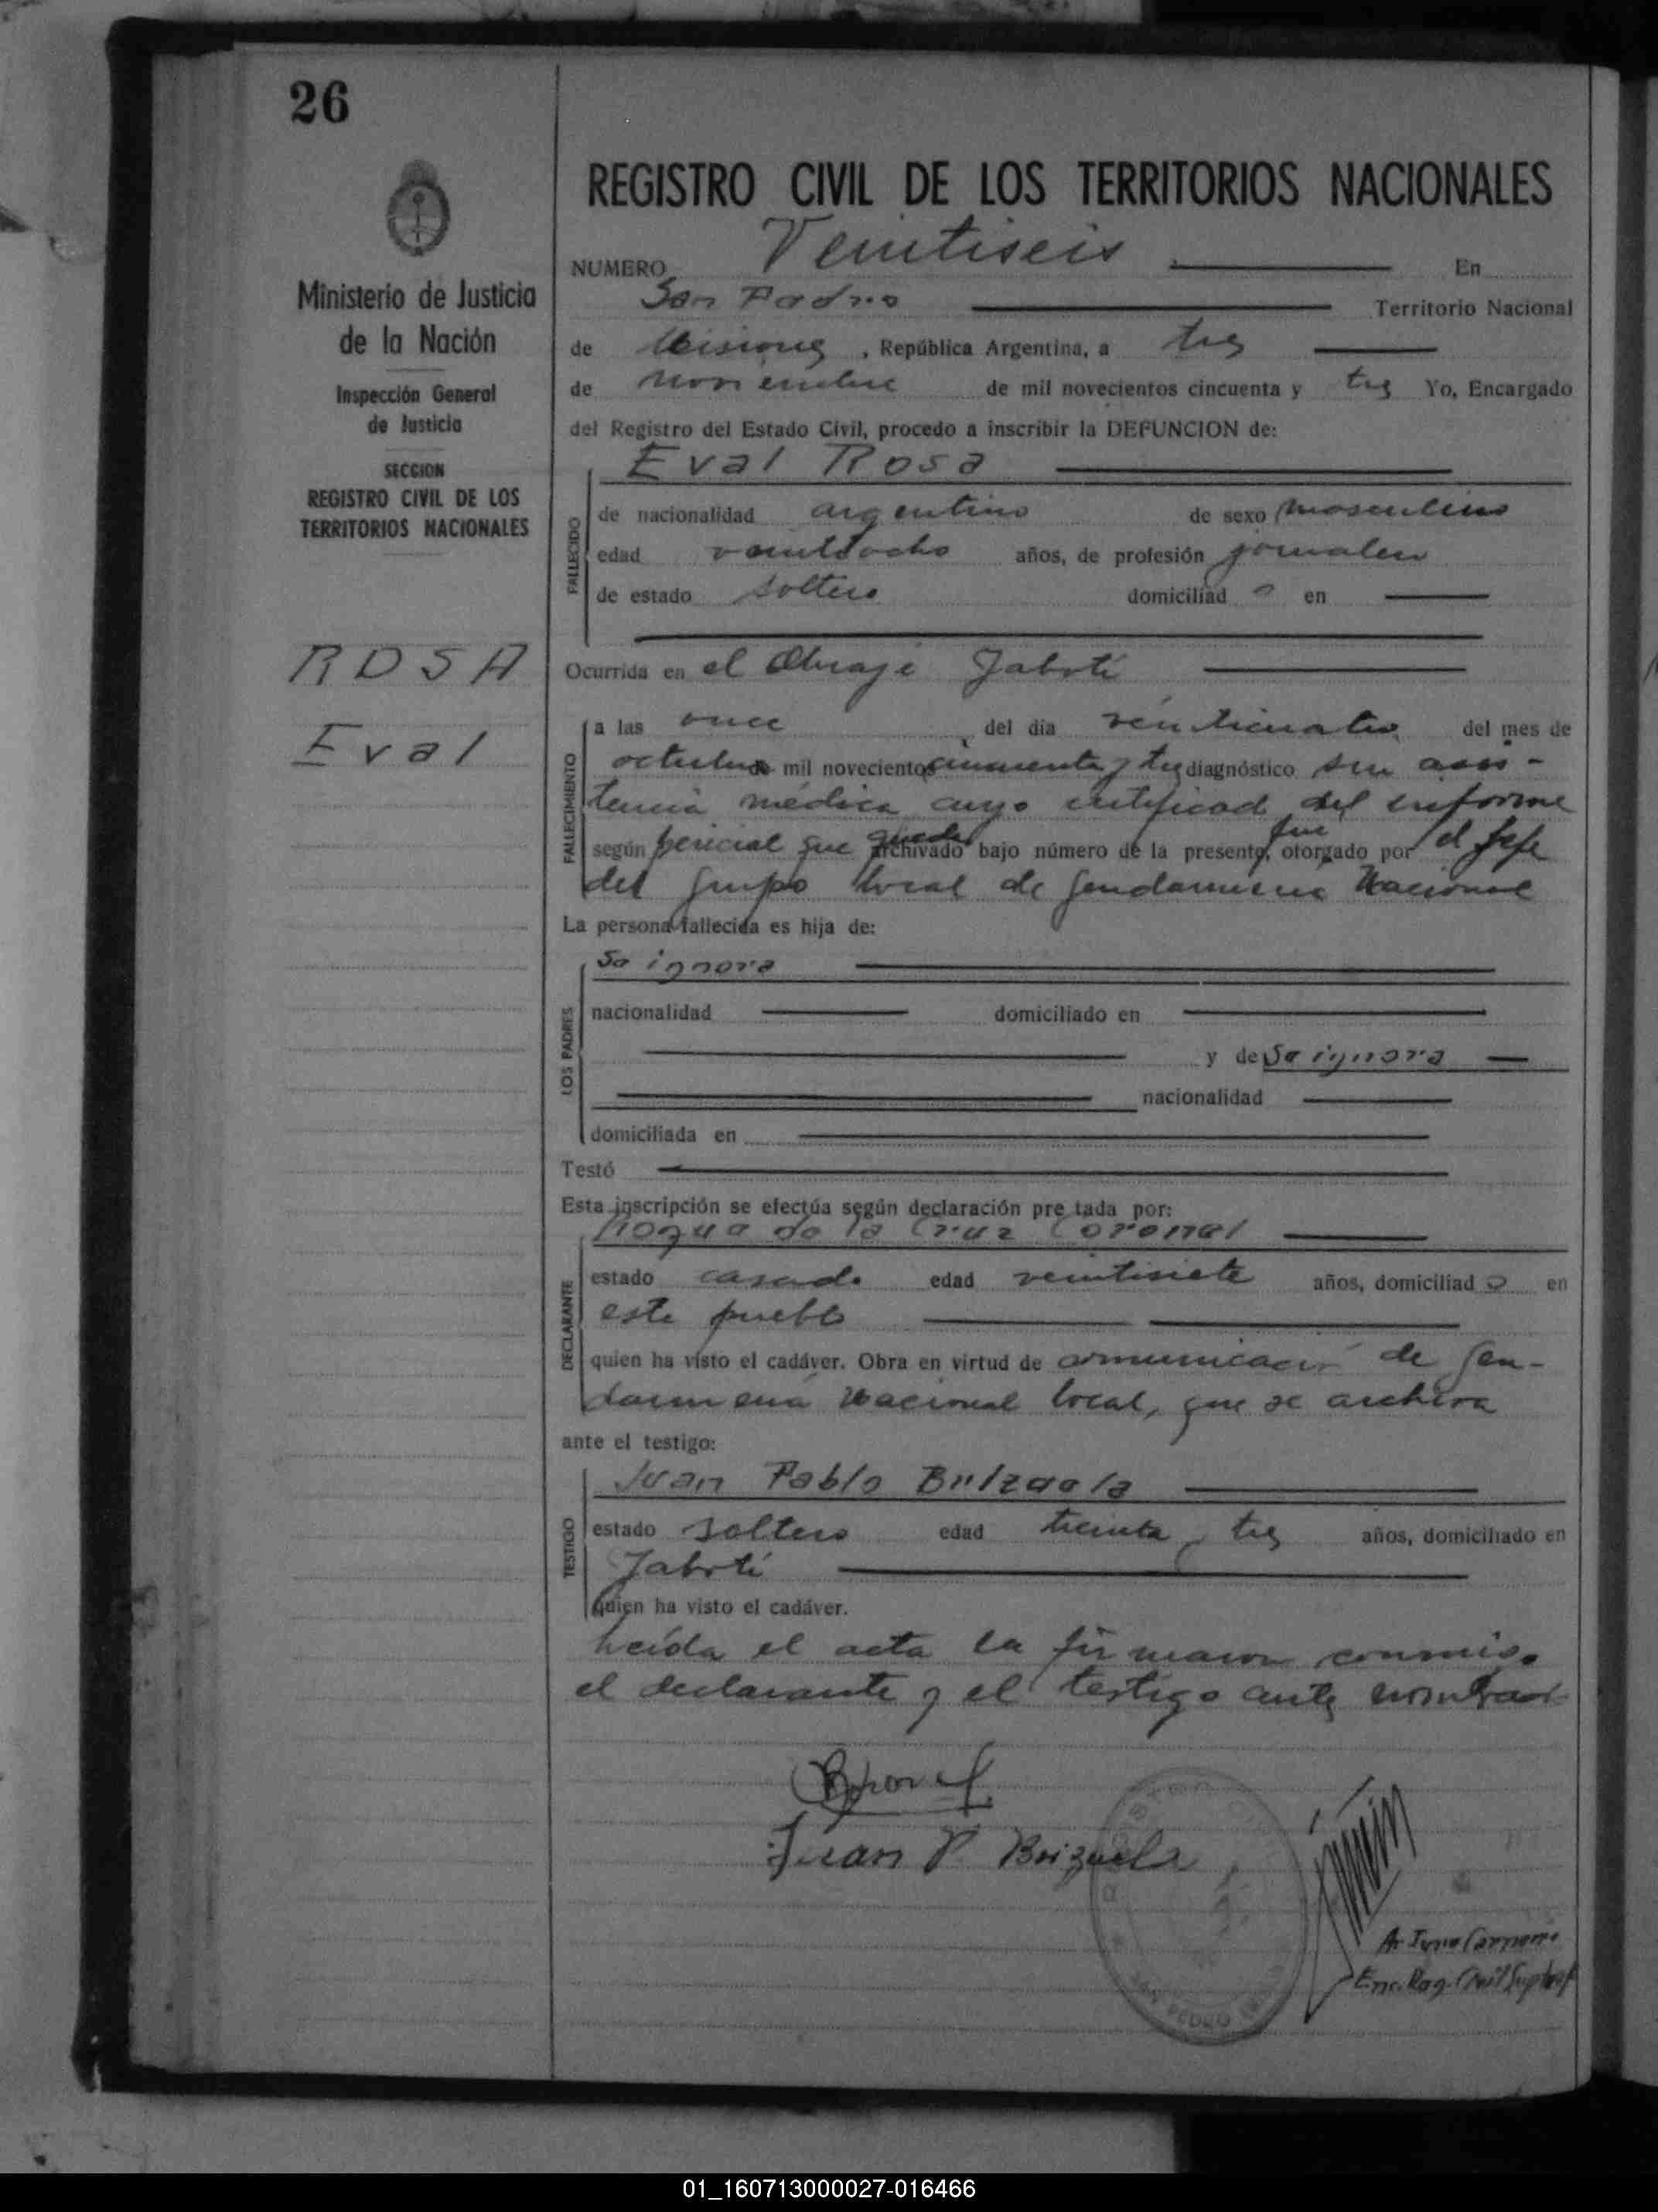 26
Ministerio de Justicia
de la Nación
Inspección General
de Justicia
SECCION
REGISTRO CIVIL DE LOS
TERRITORIOS NACIONALES
ROSA
Eval
REGISTRO CIVIL DE LOS TERRITORIOS NACIONALES
NUMERO Veintiseis En
San Pedro Territorio Nacional
de Misiones , República Argentina, a tres
de noviembre de mil novecientos cincuenta y tres Yo, Encargado
del Registro del Estado Civil, procedo a inscribir la DEFUNCION de:
Eval Rosa
FALLECIDO
de nacionalidad argentino de sexo masculino
edad veintiocho años, de profesión jornalero
de estado soltero domiciliad o en
Ocurrida en el Obraje Jabotí
FALLECIMIENTO
a las once del día veinticuatro del mes de
octubre de mil novecientos cincuenta y tres diagnóstico sin asis-
tencia médica cuyo certificad del informe
según pericial que queda archivado bajo número de la presente, fue otorgado por el Jefe
del Grupo local de Gendarmeria Nacional
La persona fallecida es hija de:
LOS PADRES
Se ignora
nacionalidad domiciliado en
y de Se ignora
nacionalidad
domiciliada en
Testó
Esta inscripción se efectúa según declaración pre tada por:
DECLARANTE
de la Cruz Coronel
estado casado edad veintisiete años, domiciliad o en
este pueblo
quien ha visto el cadáver. Obra en virtud de comunicación de Gen-
darmería Nacional local, que se archiva
ante el testigo:
TESTIGO
Juan Pablo
estado soltero edad treinta y tres años, domiciliado en
Jabotí
quien ha visto el cadáver.
Leída el acta la firmaron conmigo
el declarante y el testigo antes nombrado
Juan P Brizuela
SAN PEDRO
Enc. Reg. Civil
01_160713000027-016466